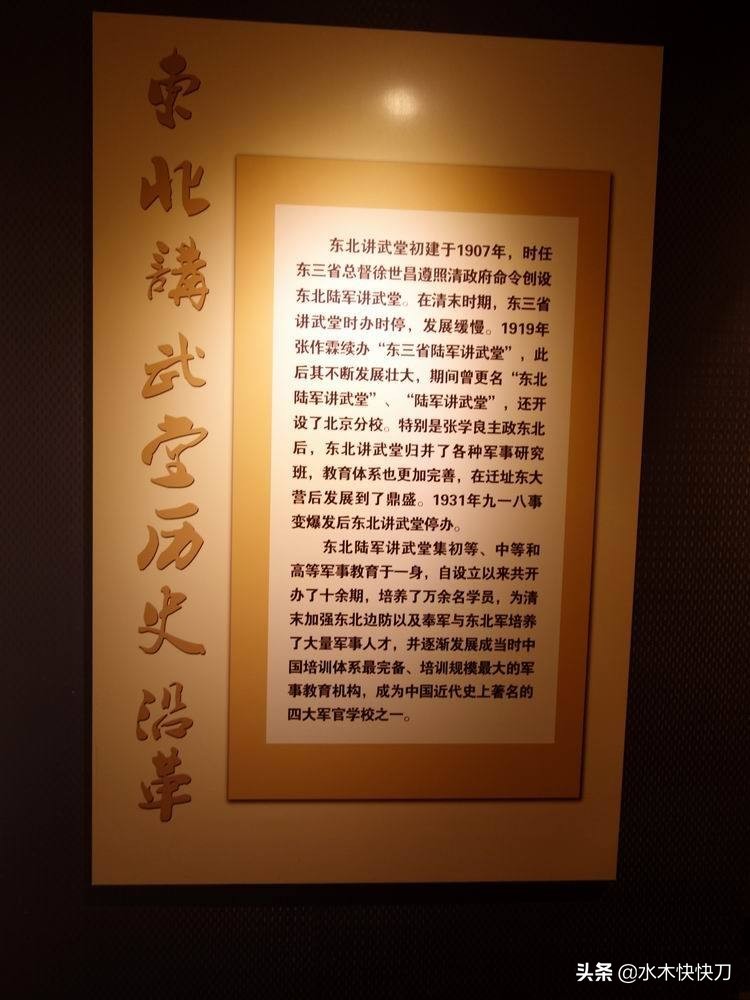 东北講武堂历史沿革
东北讲武堂初建于1907年，时任
东三省总督徐世昌遵照清政府命令创设
东北陆军讲武堂。在清末时期，东三省
讲武堂时办时停，发展缓慢。1919年
张作霖续办“东三省陆军讲武堂”，此
后其不断发展壮大，期间曾更名“东北
陆军讲武堂”、“陆军讲武堂”，还开
设了北京分校。特别是张学良主政东北
后，东北讲武堂归并了各种军事研究
班，教育体系也更加完善，在迁址东大
营后发展到了鼎盛。1931年九一八事
变爆发后东北讲武堂停办。
东北陆军讲武堂集初等、中等和
高等军事教育于一身，自设立以来共开
办了十余期，培养了万余名学员，为清
末加强东北边防以及奉军与东北军培养
了大量军事人才，并逐渐发展成当时中
国培训体系最完备、培训规模最大的军
事教育机构，成为中国近代史上著名的
四大军官学校之一。
头条 @水木快快刀